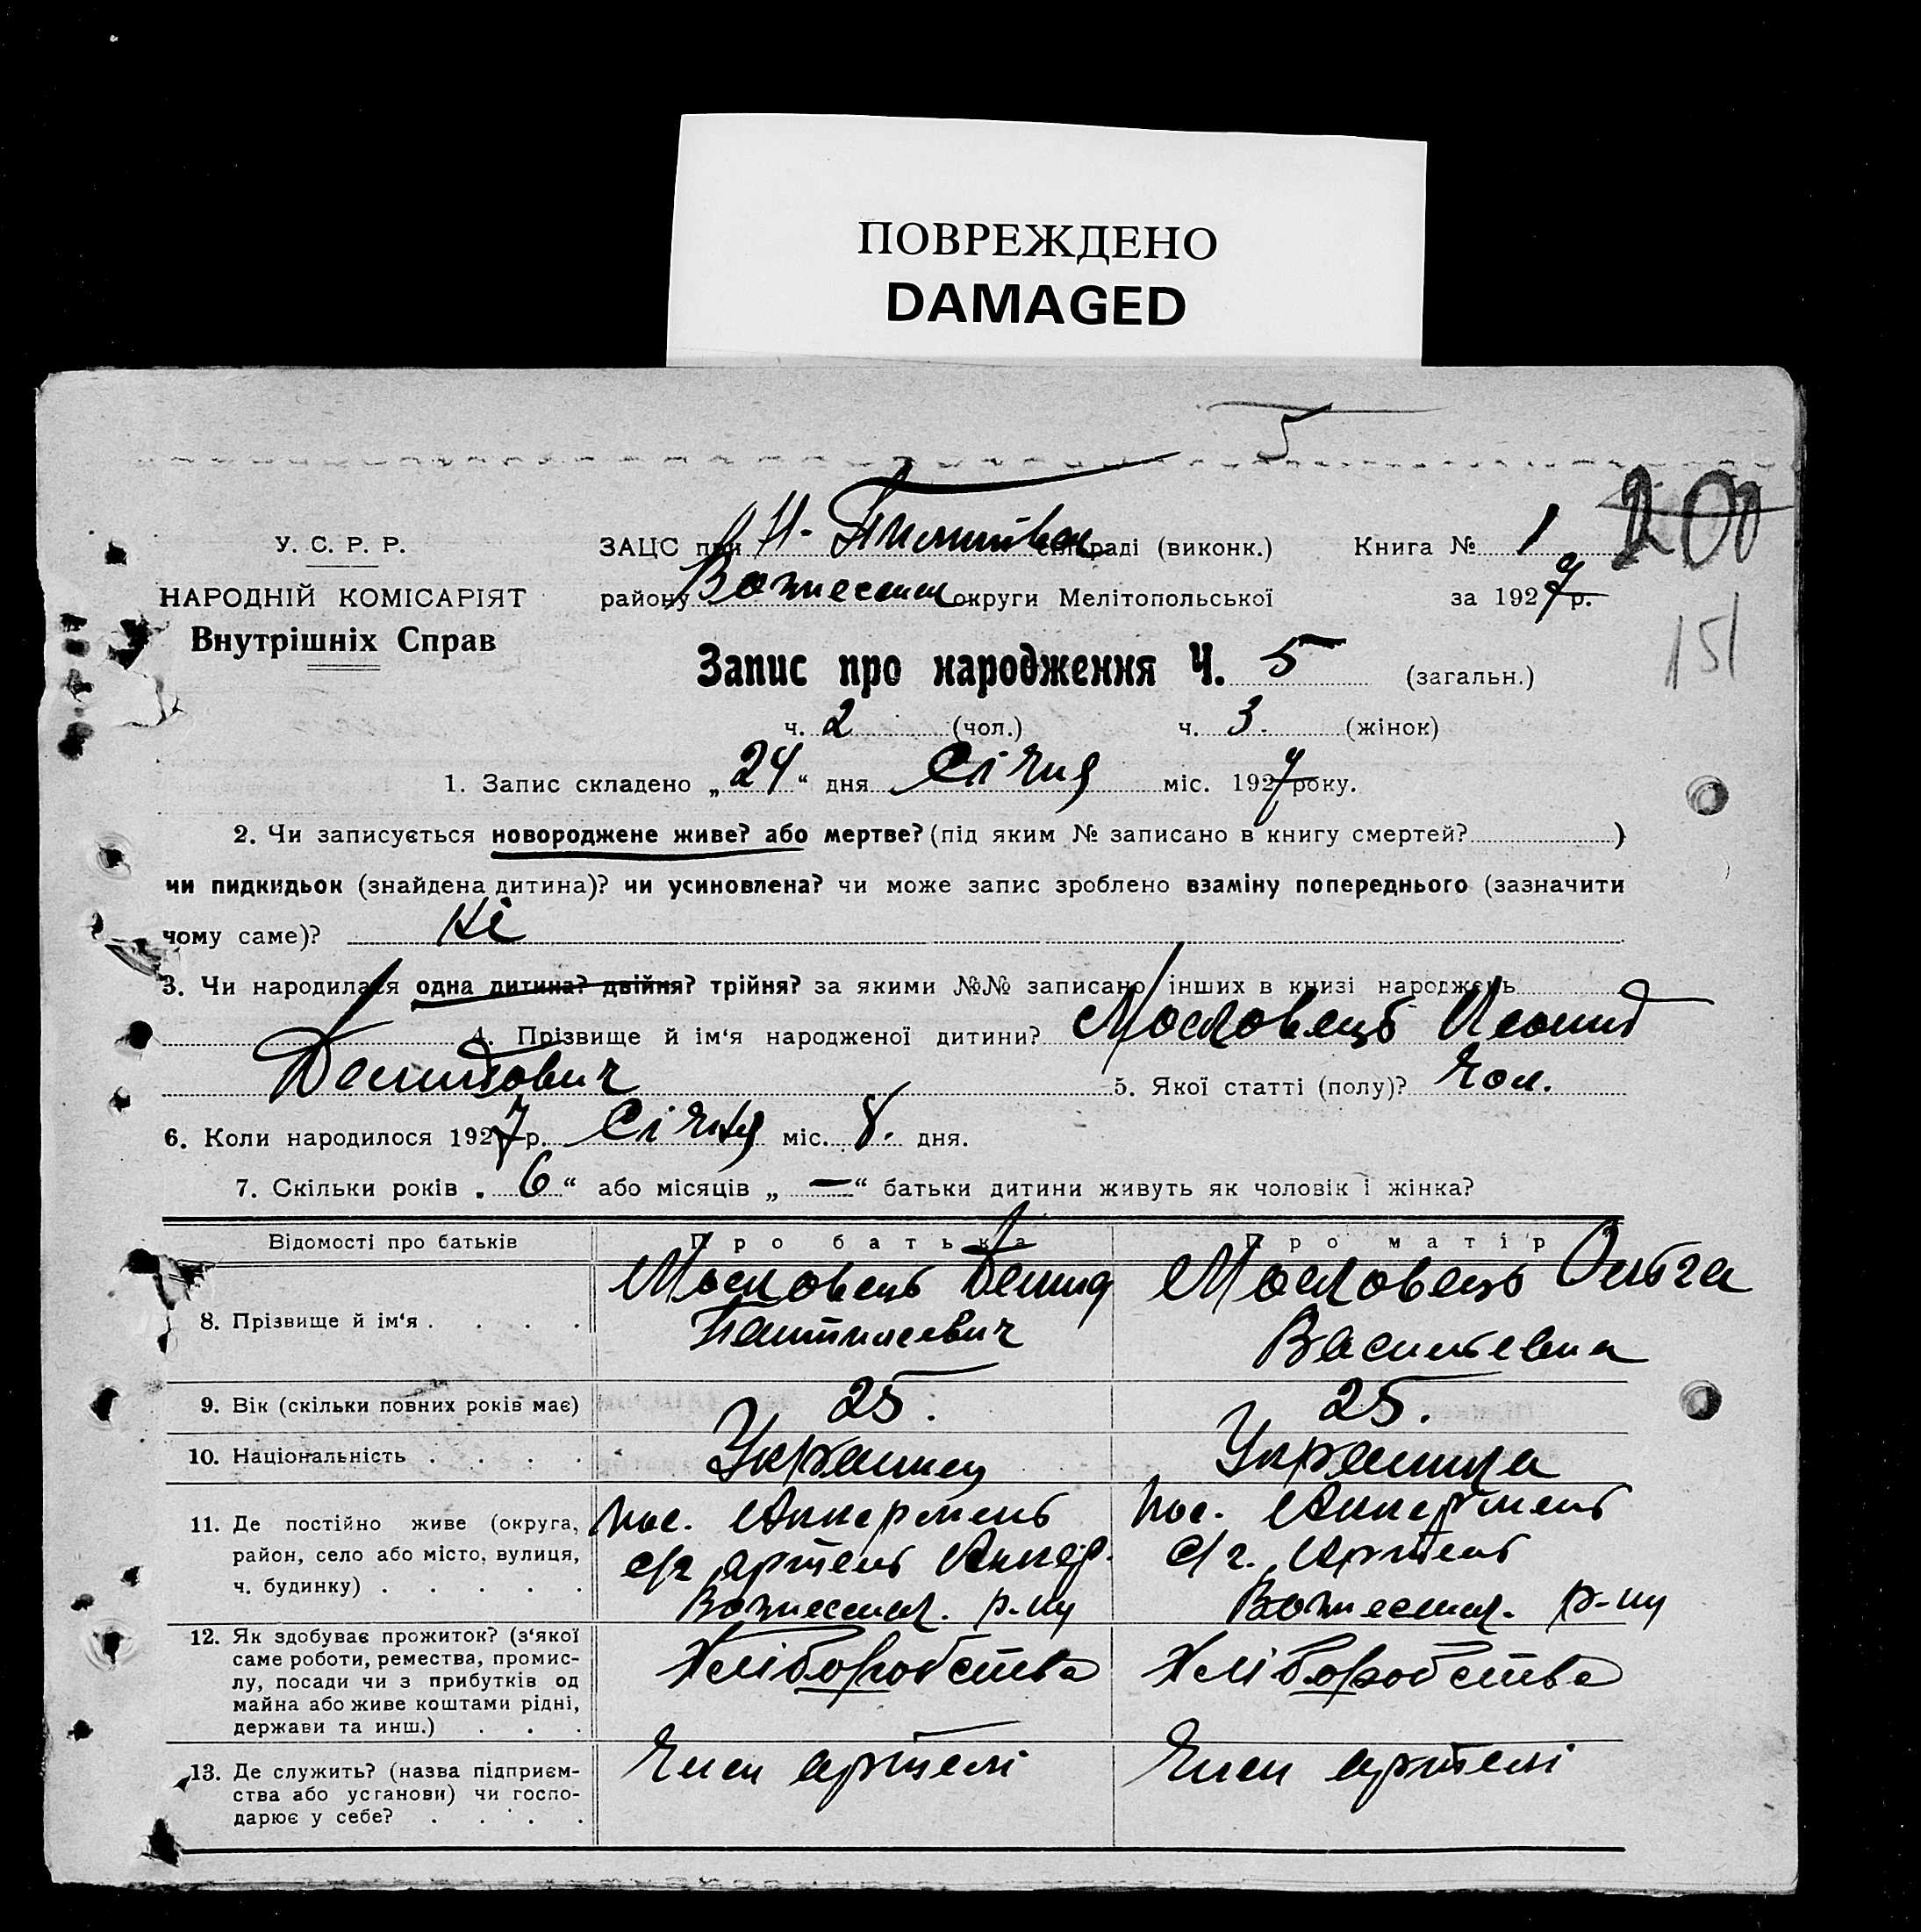 ПОВРЕЖДЕНО
DAMAGED
5
200
У. С. Р. Р.
ЗАЦС при Н- сільраді (виконк.) Книга № 1
НАРОДНІЙ КОМІСАРІЯТ
району Вознесенск округи Мелітопольської за 1927 р.
Внутрішніх Справ
151
Запис про народження Ч. 5 (загальн.)
ч. 2 (чол.) ч. 3. (жінок)
1. Запис складено „24“ дня Січня міс. 1927 року.
2. Чи записується новороджене живе? або мертве? (під яким № записано в книгу смертей? )
чи пидкидьок (знайдена дитина)? чи усиновлена? чи може запис зроблено взаміну попереднього (зазначити
чому саме)? Ні
3. Чи народилася одна дитина? двійня? трійня? за якими №№ записано інших в книзі народжень
4. Прізвище й ім‘я народженої дитини? Московець Леонид
Демидович 5. Якої статті (полу)? Чол.
6. Коли народилося 1927 р. Січня міс. 8. дня.
7. Скільки років „6“ або місяців „—“ батьки дитини живуть як чоловік і жінка?
Відомості про батьків Про батька Про матір
8. Прізвище й ім‘я . . . . Московець Демид Московець Ольга
Васильевна
9. Вік (скільки повних років має) 25. 25.
10. Національність . . . . Украинец Украинка
11. Де постійно живе (округа, район, село або місто, вулиця, ч. будинку) . . . . . пос. Аккермень пос. Аккермень
с/г артель Аккер. с/г. Артель
Вознесенск. р-ну Вознесенск. р-ну
12. Як здобуває прожиток? (з‘якої саме роботи, ремества, промис-
лу, посади чи з прибутків од
майна або живе коштами рідні,
держави та инш.) . . . Хліборобство Хліборобство
13. Де служить? (назва підприєм-
ства або установи) чи госпо-
дарює у себе? . . . . Член артелі Член артелі